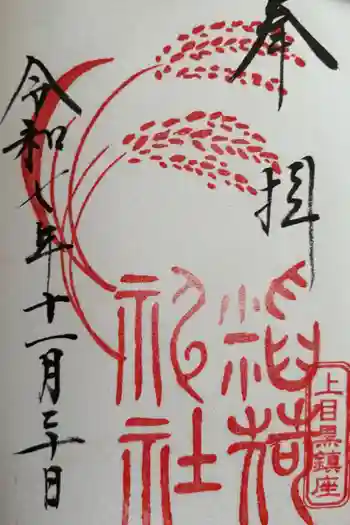 奉拝
稲荷
神社
上目黒鎮座
令和七年十一月三十日